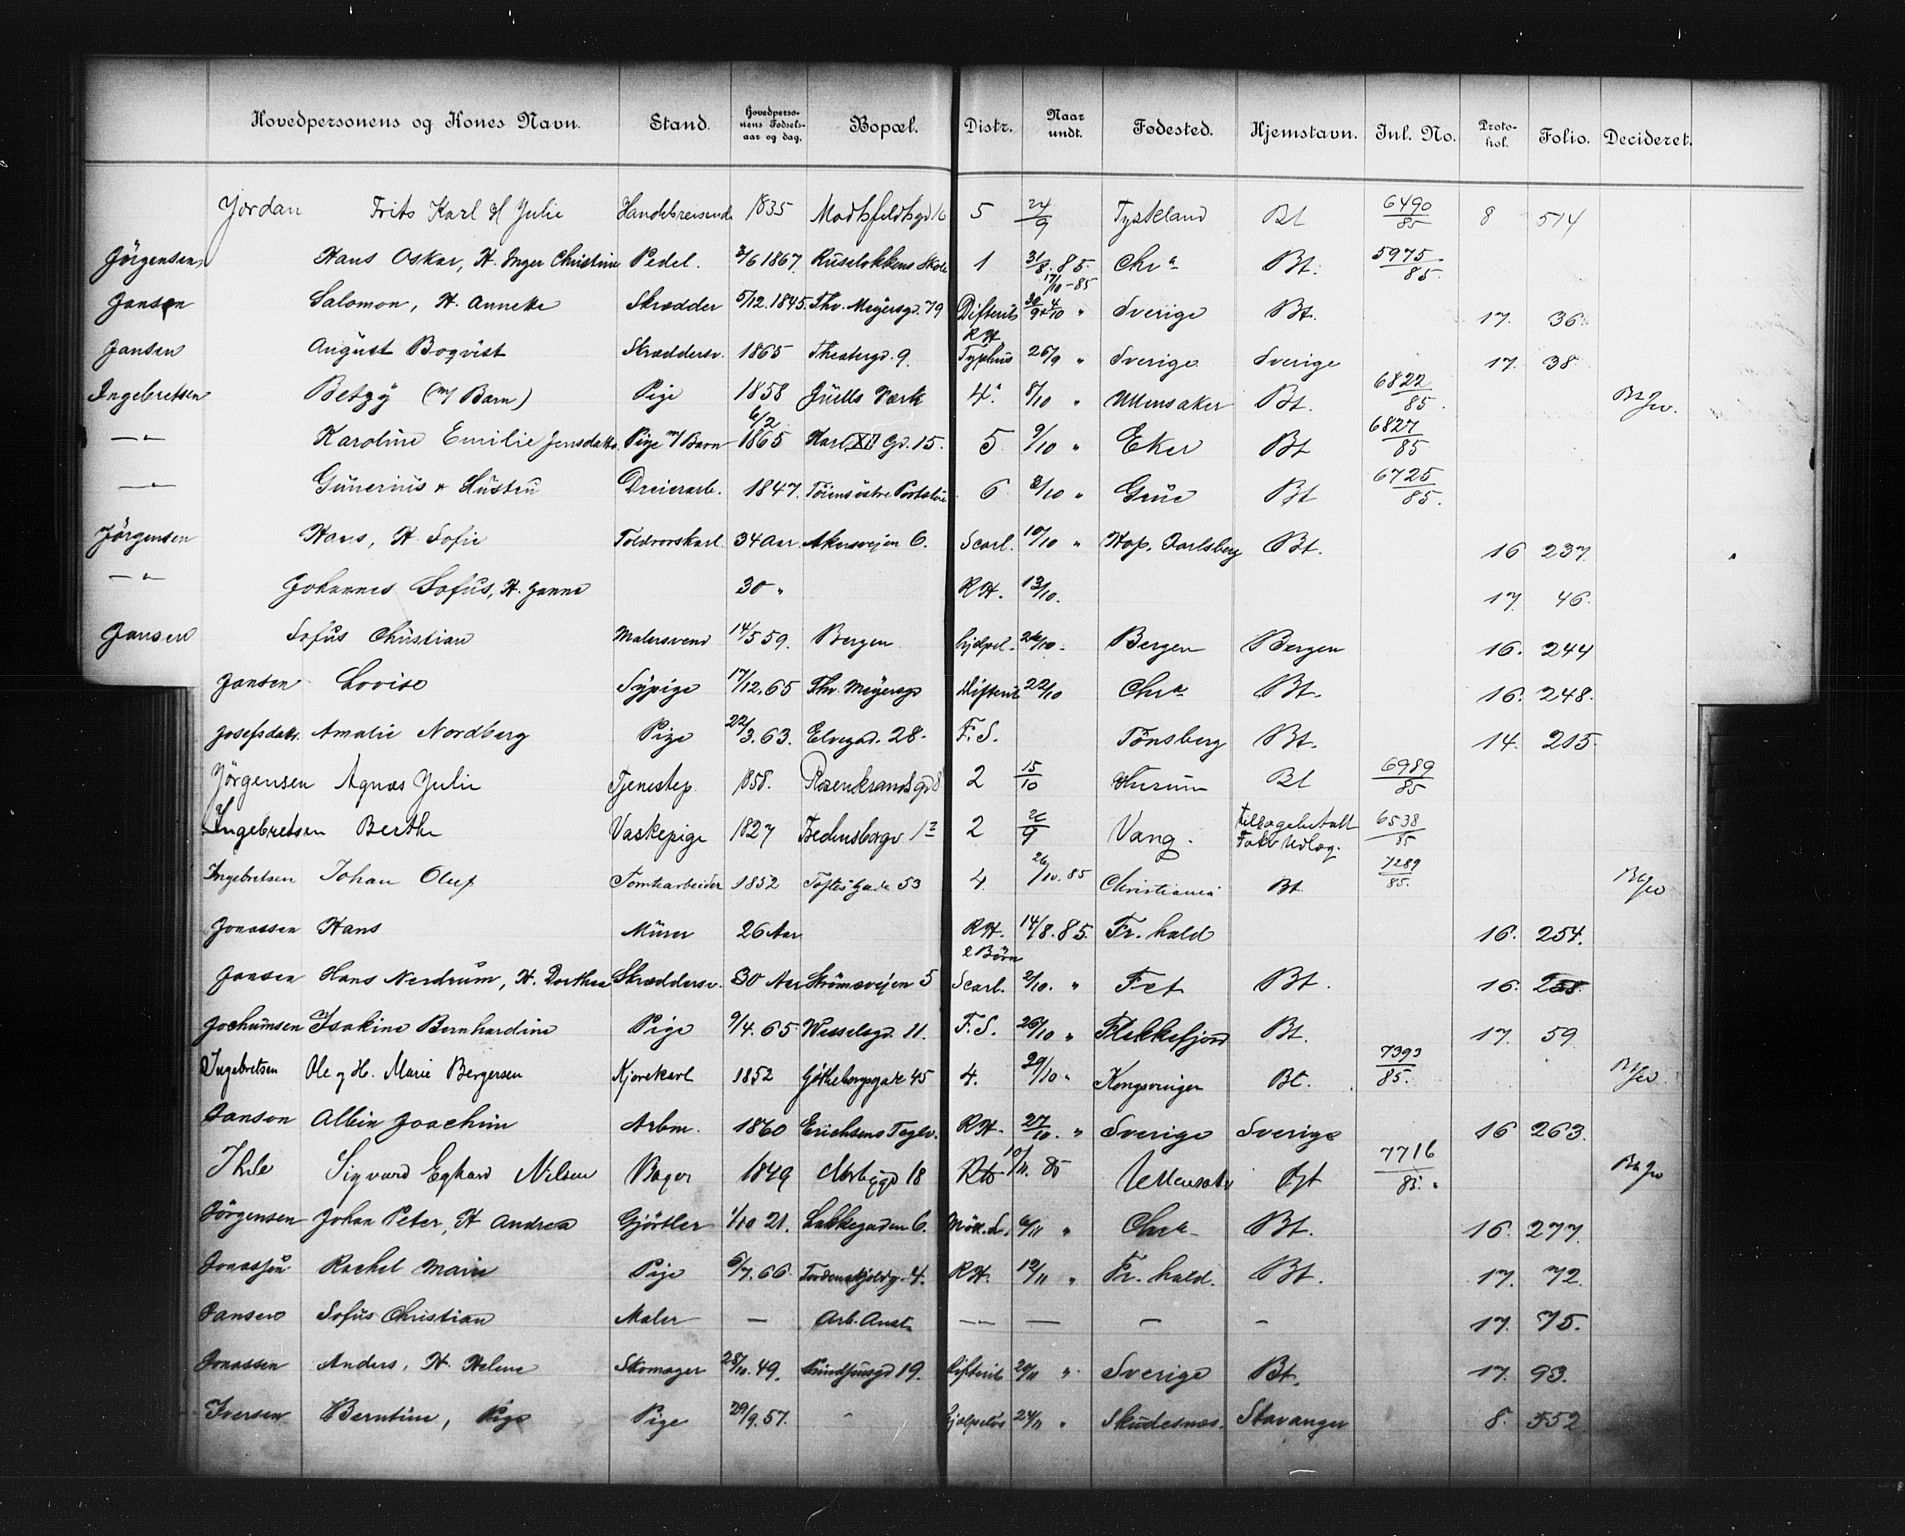 Hovedpersonens og Kones Navn. Stand. Hovedperso-nens Fødsels-aar og dag. Bopæl. Distr. Naar undt. Fødested. Hjemstavn. Inl. No. Proto-kol. Folio. Decideret.
Jordan Frits Karl H Julie 1835 5 24/9 Tyskland Bt 6490/85 8 514
Jörgensen Hans Oskar, H. Inger Christine Pedel. 2/6 1867. Ruseløkkens Skole 1 31/8. 85. Chr a Bt. 5975/85.
17/10-85
Jansen Salomon, H. Anneke Skrædder 5/12. 1845. Thv. Meyersgd. 79 Difterit 30/9 4/10 " Sverige Bt. 17. 36
Jansen August Boqvist Skræddersv. 1865 Theatergd. 9. R H. Typhus 26/9 " Sverige Sverige 17. 38
Ingebretsen Betzy (m/ Barn) Pige 1858 Juells Værk 4. 8/10 " Ullensaker Bt. 6822/85.
— " — Karoline Emilie Jensdatr. Pige m/ Barn 6/2 1865 Karl XII Gd. 15. 5 9/10 " Eker Bt 6827/85
— " — Gunerius & Hustru Dreierarb. 1847. 6 2/10 " Grue Bt 6725/85.
Jörgensen Hans, H. Sofie 34 Aar Akersvejen 6. Scarl. 10/10 " Jarlsberg Bt. 16 237
— " — Johannes Sofus, H. Janna 30 " R H. 13/10. 17. 46.
Jansen Sofus Christian Malersvend 14/5 59. Bergen 26/10. Bergen Bergen 16. 244
Jansen Lovise Sypige 17/12. 65 Thv. Meyersgd Difterit 22/10 Chr a Bt. 16. 248.
Josefsdatr. Amalie Nordberg Pige 22/3. 63. Elvegad. 28. F. S. Tönsberg Bt. 14. 215.
Jörgensen Agnes Julie Tjenestep. 1858. Rosenkrandsgd 8 2 15/10 Hurum Bt 6989/85
Ingebretsen Berthe Vaskepige 1827 2 26/9 Vang. 6538/85
Ingebretsen Johan Oluf Tomtearbeider 1852 Toftes Gade 53 4. 26/10. 85 Christiania Bt. 7289/85.
Jonassen Hans Murer 26 Aar R H. 14/8. 85. Fr. hald 16. 254.
Jansen Hans Nerdrum, H. Dorthea Skræddersv. 30 Aar Strömsvejen 5 2 Börn Scarl. 2/10. " Fet Bt. 16.
Jochumsen Isakine Bernhardine Pige 9/4. 65 Wesselsgd. 11. F. S. 26/10 " Flekkefjord Bt. 17. 59
Ingebretsen Ole og H. Marie Bergersen Kjørekarl 1852 Götheborgsgade 45 4. 29/10 " Kongsvinger Bt. 7393/85.
Janson Albin Joachim Arbm. 1860 Erichsens Teglv. R H. 27/10. " Sverige Sverige 16 263.
Ihle Sigvard Eghard Nilsen Bager 1849 18 10/11. 85 Bgt 7716/85.
Jörgensen Johan Peter, H Andrea Gjörtler 1/10 21. Lakkegaden 6. Möll. S. 6/11 " Chr a Bt. 16. 277.
Jonassen Rachel Marie Pige 6/7. 66. Tordenskjoldg. 4. R H. 12/11 " Fr. hald. Bt. 17. 72.
Jansen Sofus Christian Maler — Arb. Anst. — " — — — — 17. 75.
Jonassen Anders, H. Helene Skomager 28/10. 49. 19. Difterit 20/11 " Sverige Bt. 17. 93.
Iversen Berntine, Pige Pige 29/9. 57. " 24/11 " Skudesnæs. Stavanger 8. 552.